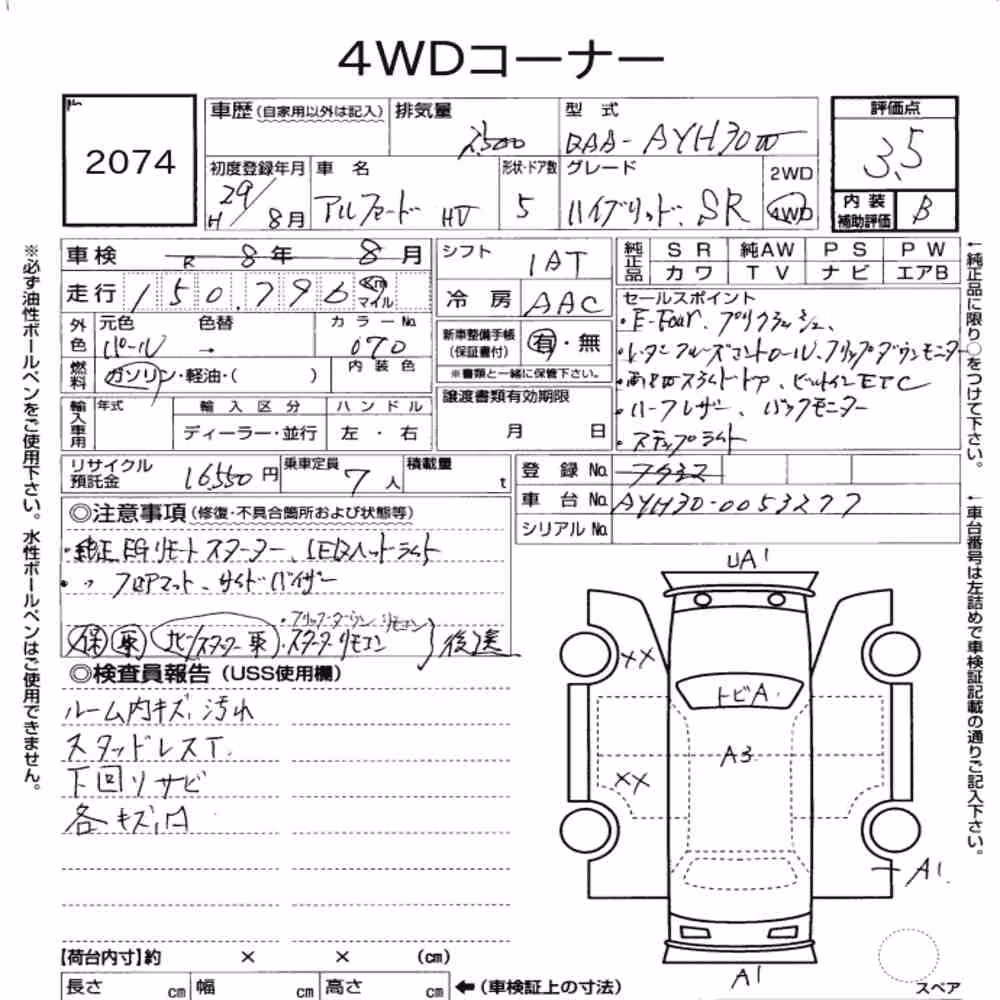 4WDコーナー
2074
車歴(自家用以外は記入) 排気量 2500 型式 DAA-AYH30W
評価点 3.5
内装補助評価 B
初度登録年月 H29/8月 車名 アルファード HV 形状・ドア数 5 グレード ハイブリッド SR 2WD 4WD
車検 R 8年 8月
走行 150,796 Km マイル
外色 元色 パール 色替 → カラーNo. 070
燃料 ガソリン・軽油・( ) 内装色
輸入車用 年式 輸入区分 ディーラー・並行 ハンドル 左・右
シフト IAT
冷房 AAC
新車整備手帳(保証書付) 有・無
※書類と一緒に保管下さい。
譲渡書類有効期限
月 日
純正品 SR 純AW PS PW
カワ TV ナビ エアB
セールスポイント
・E-Four、プリクラッシュ、
・レーダークルーズコントロール、フリップダウンモニター
・両側Wスライドドア、ビルトインETC
・ハーフレザー、バックモニター
・ステップライト
リサイクル預託金 16,550円 乗車定員 7人 積載量 t
登録No.
車台No. AYH30-0053277
シリアルNo.
◎注意事項(修復・不具合箇所および状態等)
・純正EGリモートスターター、LEDヘッドライト
・〃 フロアマット、サイドバイザー
・フリップダウンリモコン
保 取 ナビ/スターター取 ・スターターリモコン 後送
◎検査員報告(USS使用欄)
ルーム内キズ、汚れ
スタッドレスT
下回りサビ
各キズ、凹
UA1
××
トビA
A3
××
A1
A1
スペア
【荷台内寸】約 × × (cm)
長さ cm 幅 cm 高さ cm ←(車検証上の寸法)
※必ず油性ボールペンをご使用下さい。水性ボールペンはご使用できません。
←純正品に限り○をつけて下さい。
←車台番号は左詰めで車検証記載の通りご記入下さい。